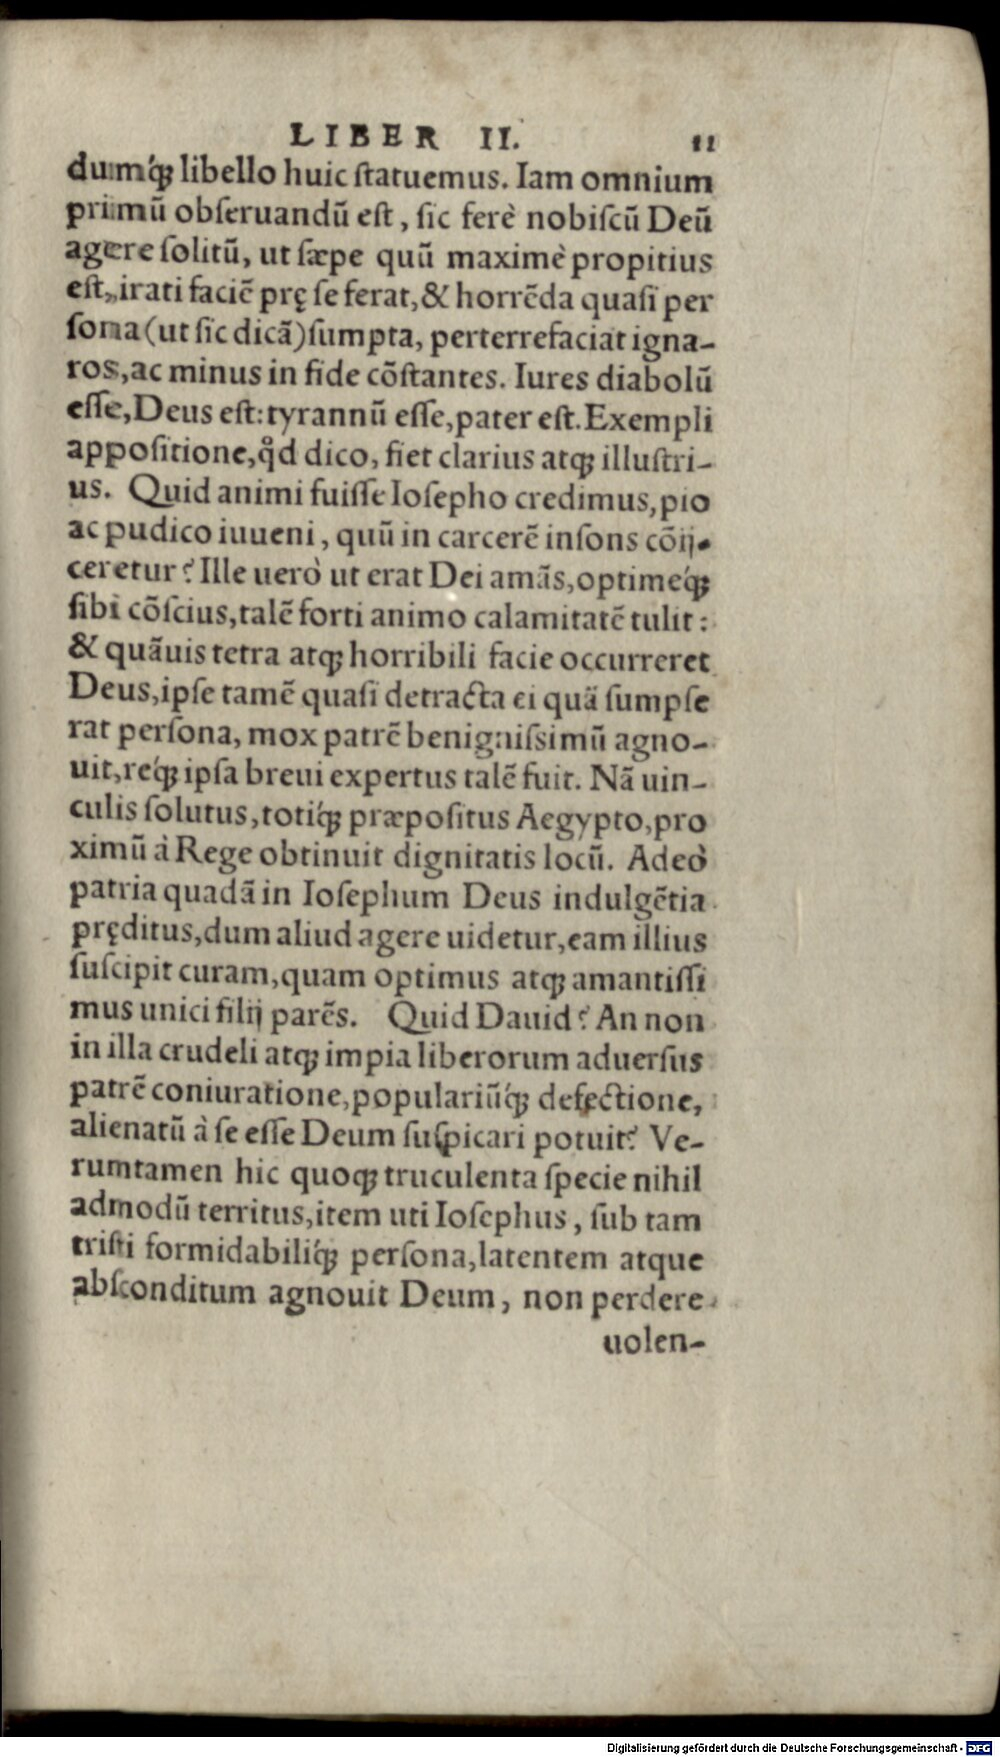 LIBER II. 11
dumq́ꝫ libello huic ſtatuemus. Iam omnium
primū obſeruandū eſt, ſic ferè nobiſcū Deū
agere ſolitū, ut ſæpe quū maximè propitius
eſt, irati faciē prę ſe ferat, & horrēda quaſi per
ſona (ut ſic dicā) ſumpta, perterrefaciat igna-
ros, ac minus in fide cōſtantes. Iures diabolū
eſſe, Deus eſt: tyrannū eſſe, pater eſt. Exempli
appoſitione, qd̊ dico, fiet clarius atqꝫ illuſtri-
us. Quid animi fuiſſe Ioſepho credimus, pio
ac pudico iuueni, quū in carcerē inſons cōij-
ceretur? Ille uerò ut erat Dei amās, optimeq́ꝫ
ſibi cōſcius, talē forti animo calamitatē tulit:
& quāuis tetra atqꝫ horribili facie occurreret
Deus, ipſe tamē quaſi detracta ei quā ſumpſe
rat perſona, mox patrē benigniſsimū agno-
uit, req́ꝫ ipſa breui expertus talē fuit. Nā uin-
culis ſolutus, totiq́ꝫ præpoſitus Aegypto, pro
ximū à Rege obtinuit dignitatis locū. Adeò
patria quadā in Ioſephum Deus indulgētia
pręditus, dum aliud agere uidetur, eam illius
ſuſcipit curam, quam optimus atqꝫ amantiſſi
mus unici filij parēs. Quid Dauid? An non
in illa crudeli atqꝫ impia liberorum aduerſus
patrē coniuratione, populariūq́ꝫ defectione,
alienatū à ſe eſſe Deum ſuſpicari potuit? Ve-
rumtamen hic quoqꝫ truculenta ſpecie nihil
admodū territus, item uti Ioſephus, ſub tam
triſti formidabiliq́ꝫ perſona, latentem atque
abſconditum agnouit Deum, non perdere
uolen-
Digitalisierung gefördert durch die Deutsche Forschungsgemeinschaft - DFG